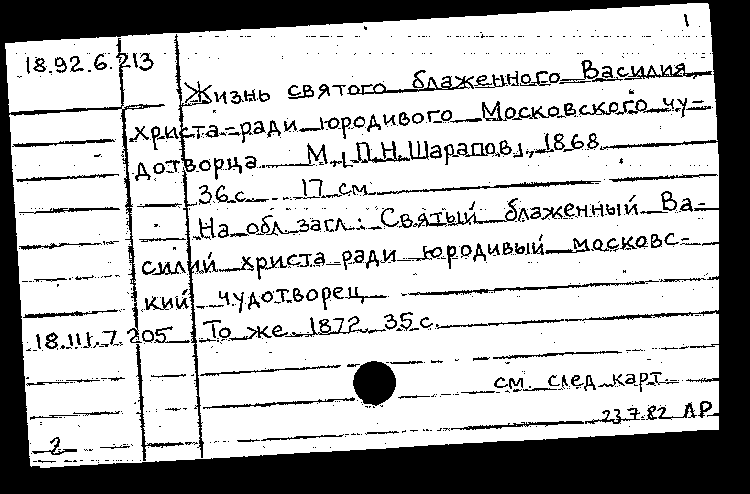 1
18.92.6.213
Жизнь святого блаженного Василия,
христа-ради юродивого Московского чу-
дотворца М., [П.Н.Шарапов], 1868
36с 17 см
На обл. загл.: Святый блаженный Ва-
силий христа ради юродивый московс-
кий чудотворец
18.III.7.205 То же. 1872. 35с.
см. след. карт.
23.7.82 ЛР
2